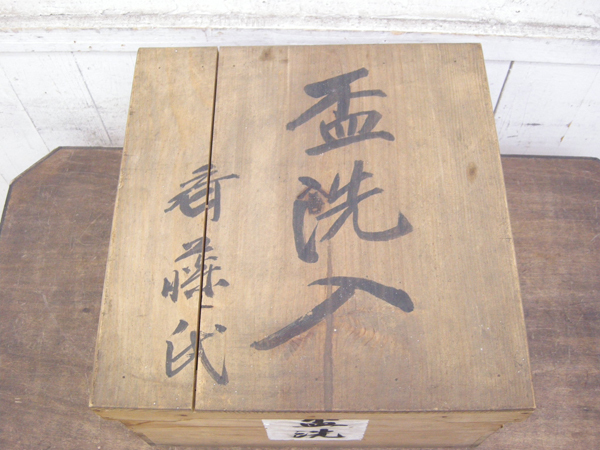 盃洗入
斉藤氏
盃洗